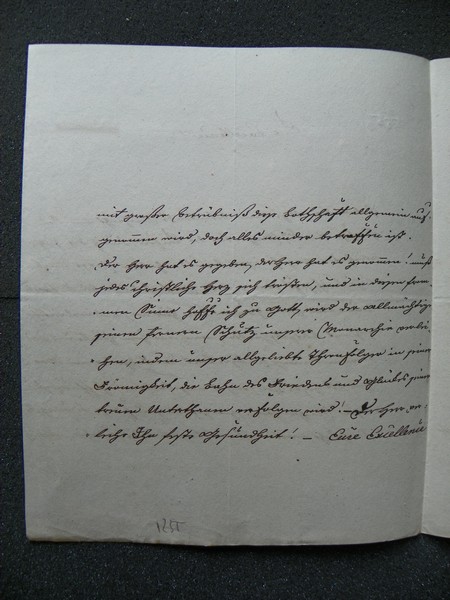 mit großer Betrübniß diese Bothschaft allgemein auf-
genommen wird, doch alles minder betroffen ist.
Der Herr hat es gegeben, der Herr hat es genommen! muß
jedes christliche Herz sich trösten, und in diesem from-
men Sinne hoffe ich zu Gott, wird der Allmächtige
seinen fernern Schutz unserer Monarchie verlei-
hen, indem unser allgeliebte Thronfolger in seiner
Frömmigkeit, die Bahn des Friedens und Glückes seiner
treuen Unterthanen verfolgen wird! – Der Herr ver-
leihe Ihm feste Gesundheit! – Eure Excellenz